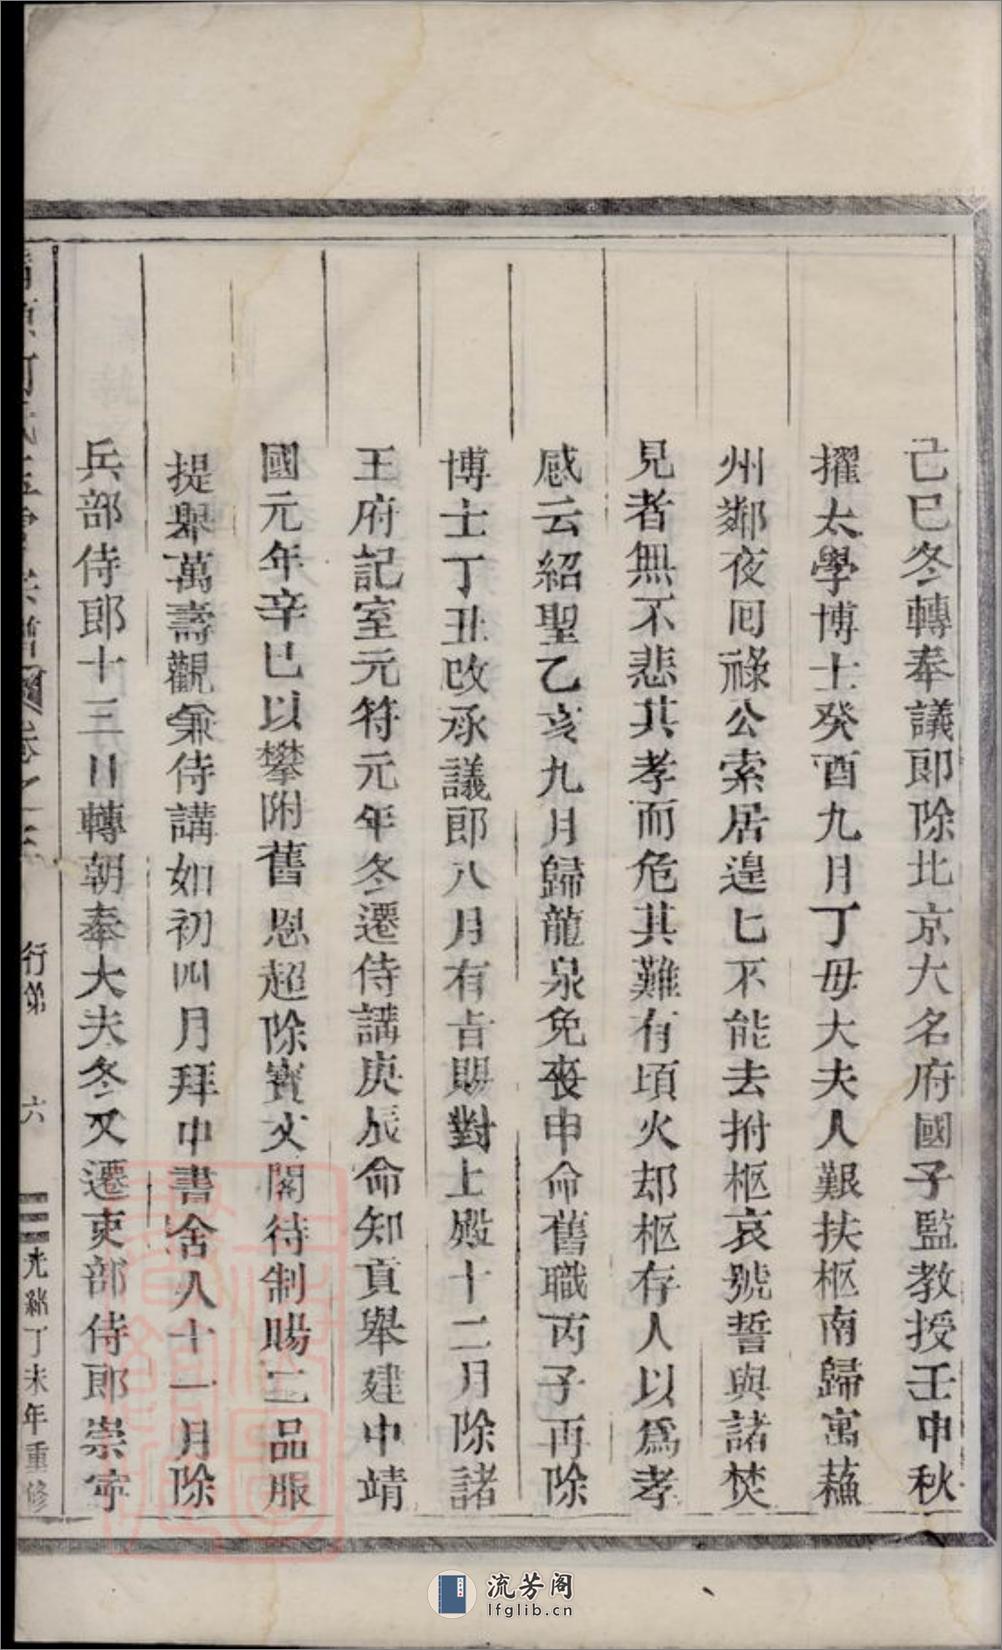 己巳冬轉奉議郎除北京大名府國子監教授壬申秋
擢太學博士癸酉九月丁毋大夫人艱扶柩南歸寓蘓
州鄰夜囘祿公索居遑匕不能去拊柩哀號誓與諸焚
見者無不悲其孝而危其難有頃火却柩存人以爲孝
感云紹聖乙亥九月歸龍泉免喪申命舊職丙子再除
博士丁丑改承議郎八月有㫖賜對上殿十二月除諸
王府記室元符元年冬遷侍講庚辰命知貢舉建中靖
國元年辛巳以攀附舊恩超除寳文閣待制賜三品服
提舉萬壽觀兼侍講如初四月拜中書舍人十一月除
兵部侍郎十三日轉朝奉大夫冬又遷吏部侍郎崇寧
行第 六 光緒丁未年重修
流芳阁
lfglib.cn